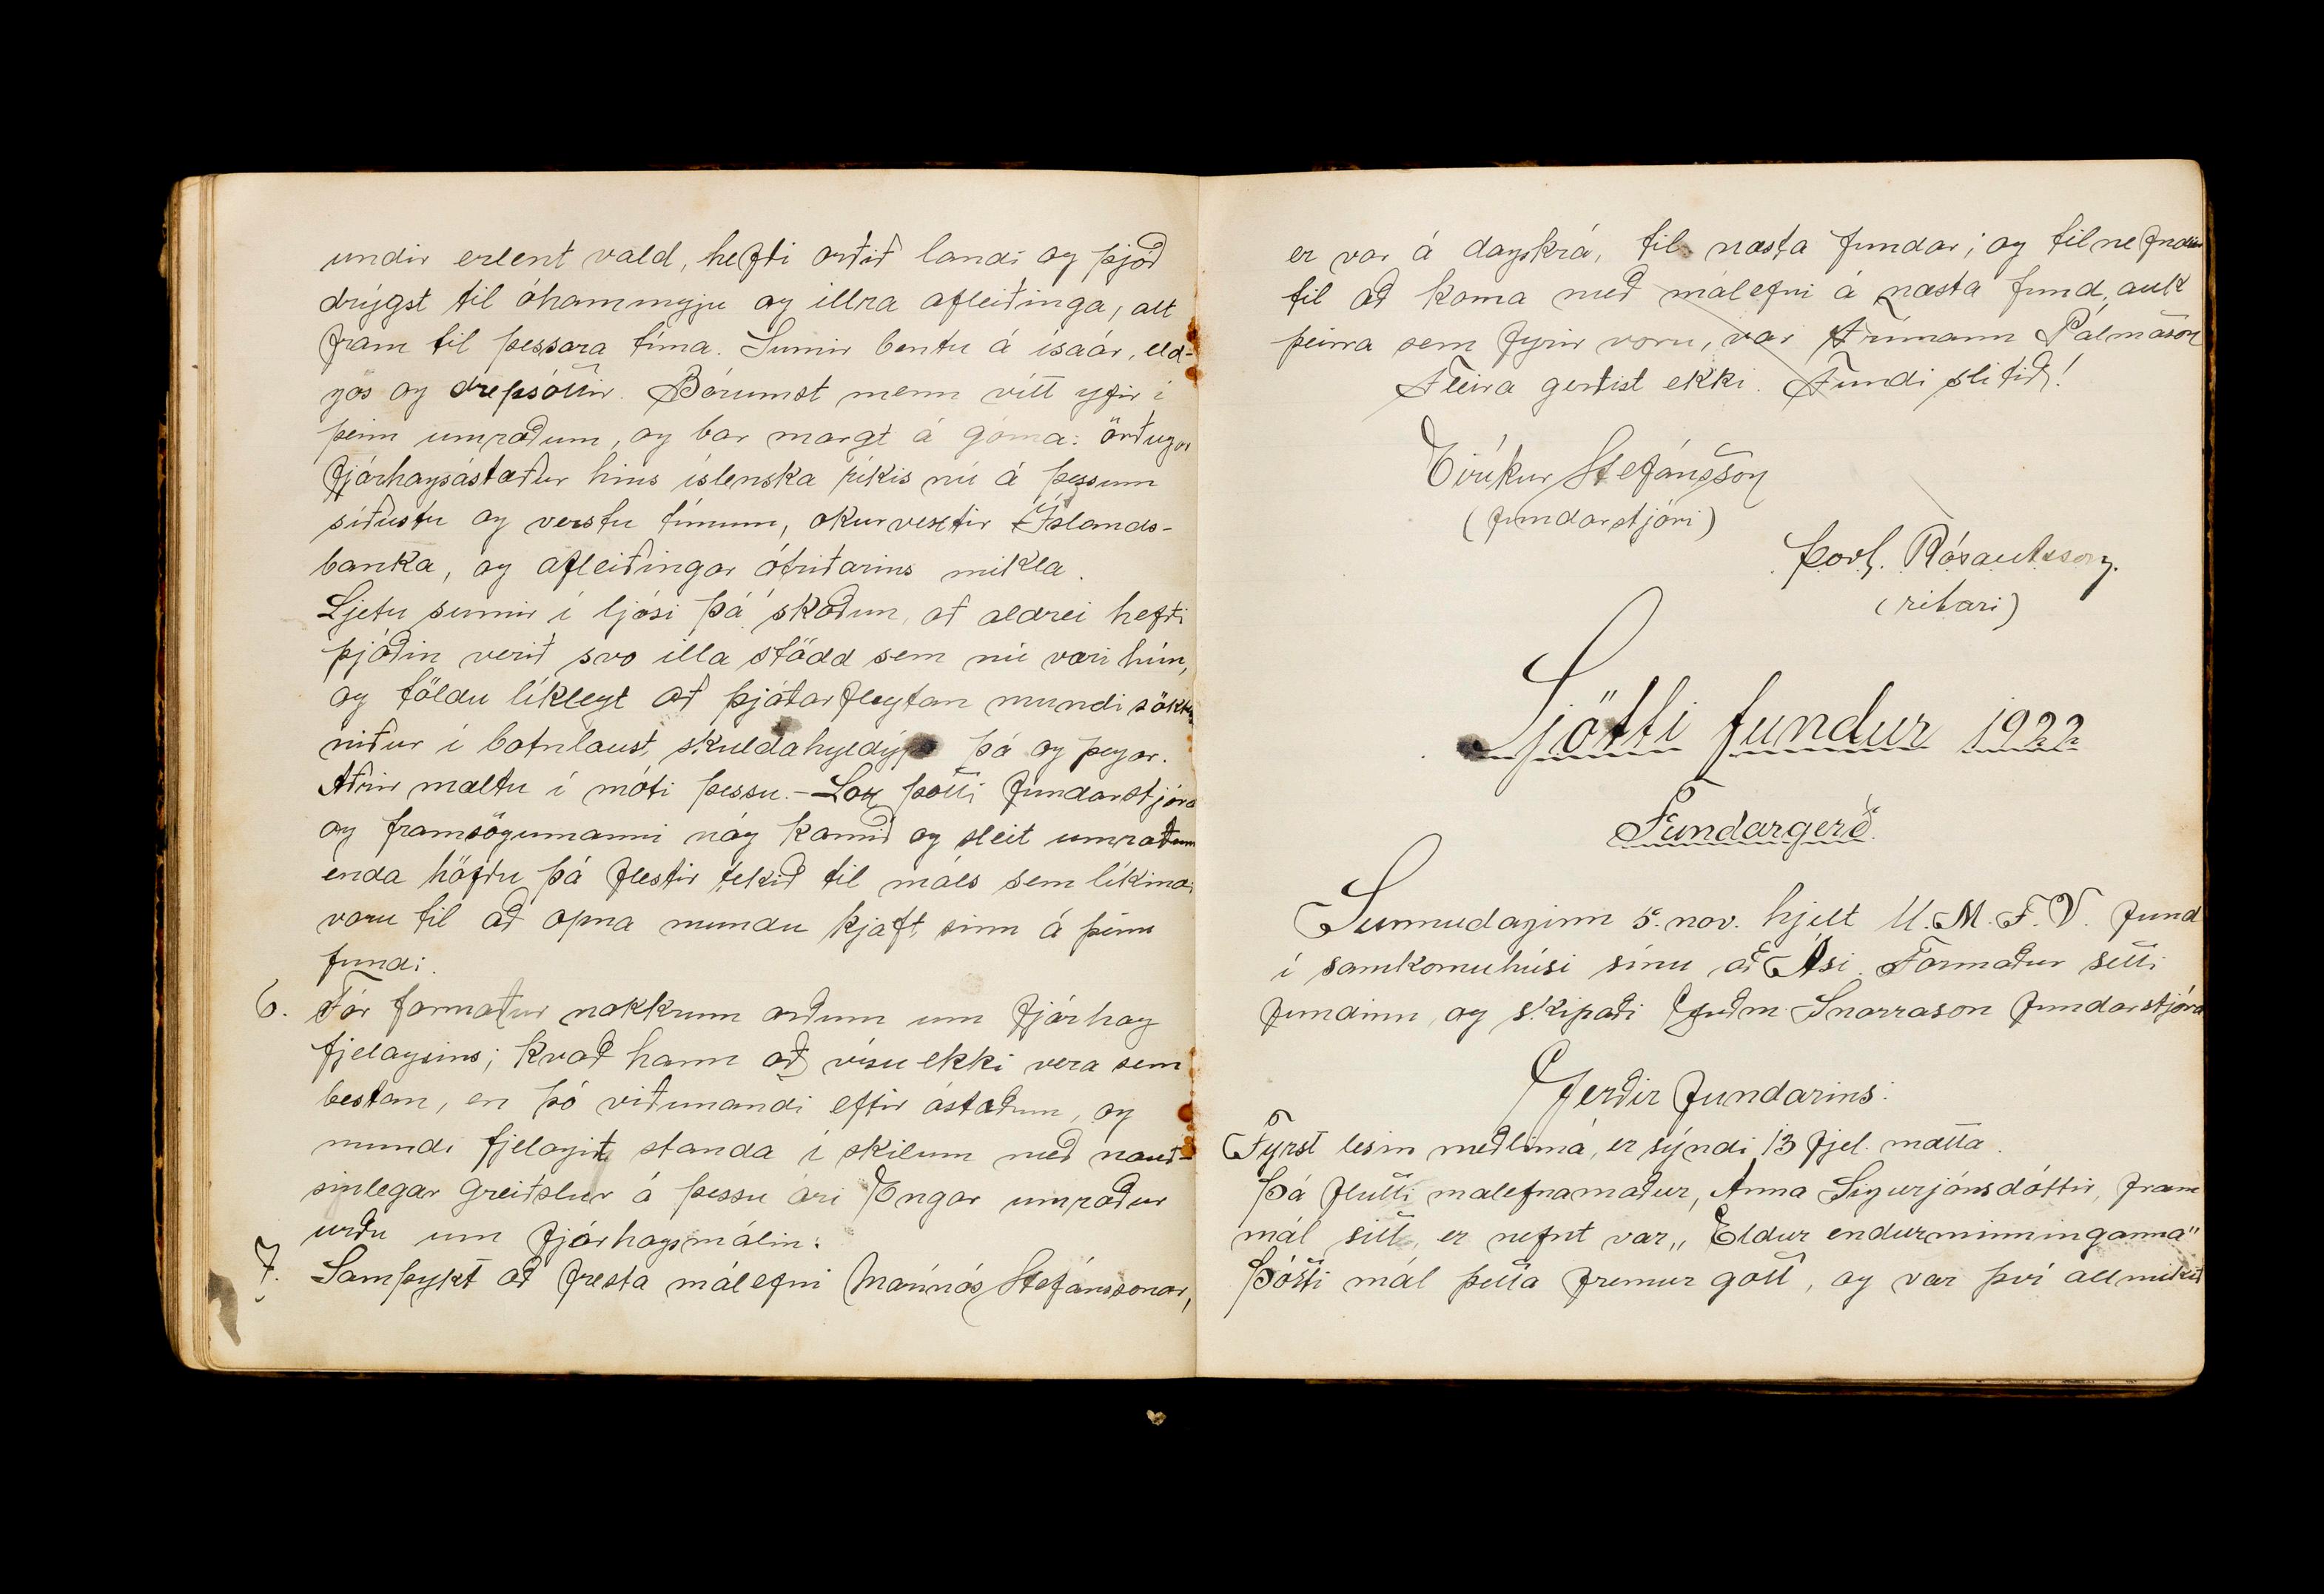 undir erlent vald, hefði orðið landi og þjóð
drýgst til óhammgju og illra afleiðinga, alt
fram til þessara tíma. Sumir bentu á ísaár, eld-
gos og drepsóttir. Bárumst menn vítt yfir í
þeim umræðum, og bar margt á góma: örðugar
fjárhagsástæður hins íslenska ríkis nú á þessum
síðustu og verstu tímum, okurvextir Íslands-
banka, og afleiðingar ófriðarins mikla.
Ljetu sumir í ljósi þá skoðun, að aldrei hefði
þjóðin verið svo illa stödd sem nú væri hún,
og töldu líklegt að þjóðarfleytan mundi sökkva
niður í botnlaust skuldahyldýpi þá og þegar.
Aðrir mæltu í móti þessu. - Loks þótti fundarstjóra
og framsögumanni nóg komið og sleit umræðum
enda höfðu þá flestir tekið til máls sem líkindi
voru til að opna mundu kjaft sinn á þeim
fundi.
6. Fór formaður nokkrum orðum um fjárhag
fjelagsins; kvað hann að vísu ekki vera sem
bestan, en þó viðunandi eftir ástæðum, og
mundi fjelagið standa í skilum með nauð-
synlegar greiðslur á þessu ári. Engar umræður
urðu um fjárhagsmálin.
7. Samþykt að fresta málefni Mannás Stefánssonar,
er var á dagskrá, til næsta fundar; og tilnefndur
til að koma með málefni á næsta fund, auk
þeirra sem fyrir voru, var Frímann Pálmason
Fleira gerðist ekki. Fundi slitið!
Eiríkur Stefánsson
(fundarstjóri)
Þorl. Rósantsson.
(ritari)
Sjötti fundur 1922
Fundargerð.
Sunnudaginn 5. nov. hjelt U.M.F.V. fund
í samkomuhúsi sínu að Ási. Formaður setti
fundinn og skipaði Guðm. Snorrason fundarstjóra
Gerðir fundarins:
Fyrst lesin meðlimá, er sýndi 13 fjel. mætta.
Þá flutti malefnamaður, Anna Sigurjónsdóttir, fram
mál sitt, er nefnt var „Eldur endurminninganna"
Þótti mál þetta fremur gott, og var því allmikið